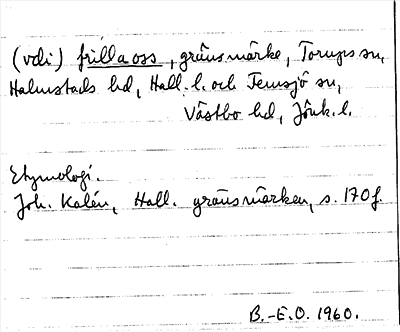 (vdi) frillaoss, gränsmärke, Torups sn,
Halmstads hd, Hall. l. och Femsjö sn,
Västbo hd, Jönk. l.
Etymologi.
Joh. Kalén, Hall. gränsmärken, s. 170 f.
B.-E.O. 1960.